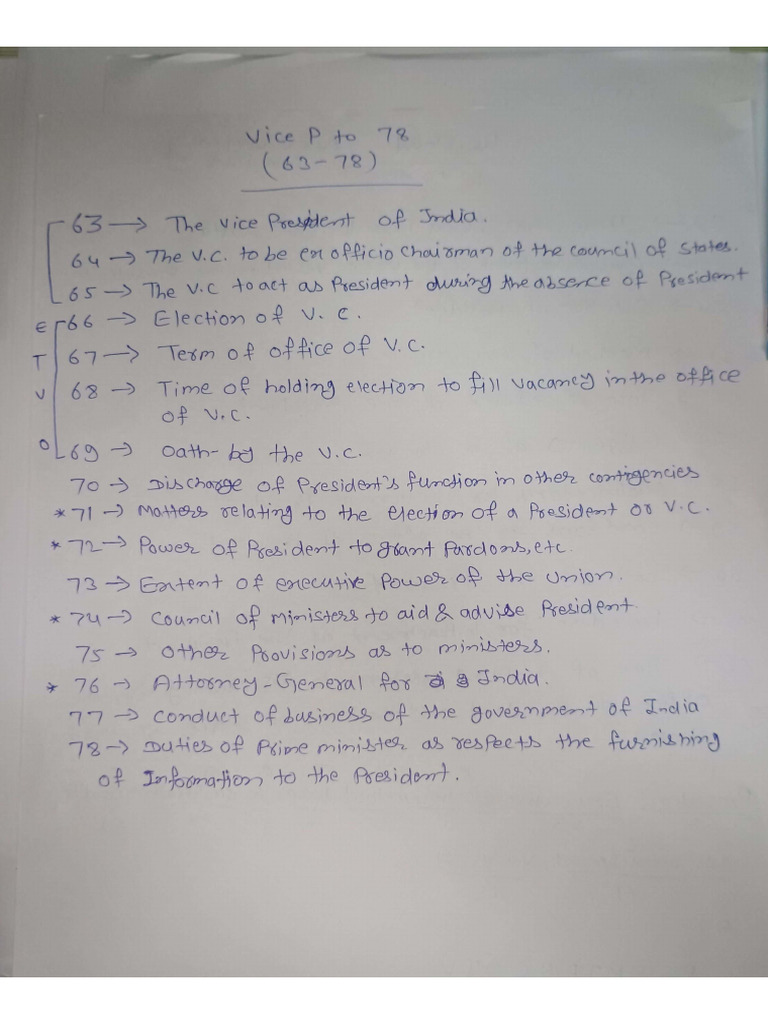 Vice P to 78
(63-78)
63 → The Vice President of India.
64 → The V.C. to be ex officio chairman of the council of states.
65 → The V.C to act as President during the absence of President
E 66 → Election of V. C.
T 67 → Term of office of V.C.
V 68 → Time of holding election to fill vacancy in the office
of V.C.
O 69 → Oath- by the V.C.
70 → Discharge of President's function in other contigencies
* 71 → Matters relating to the election of a President or V.C.
* 72 → Power of President to grant Pardons, etc.
73 → Extent of executive Power of the Union.
* 74 → Council of ministers to aid & advise President.
75 → Other Provisions as to ministers.
* 76 → Attorney-General for India.
77 → Conduct of business of the government of India
78 → Duties of Prime minister as respects the furnishing
of Information to the President.